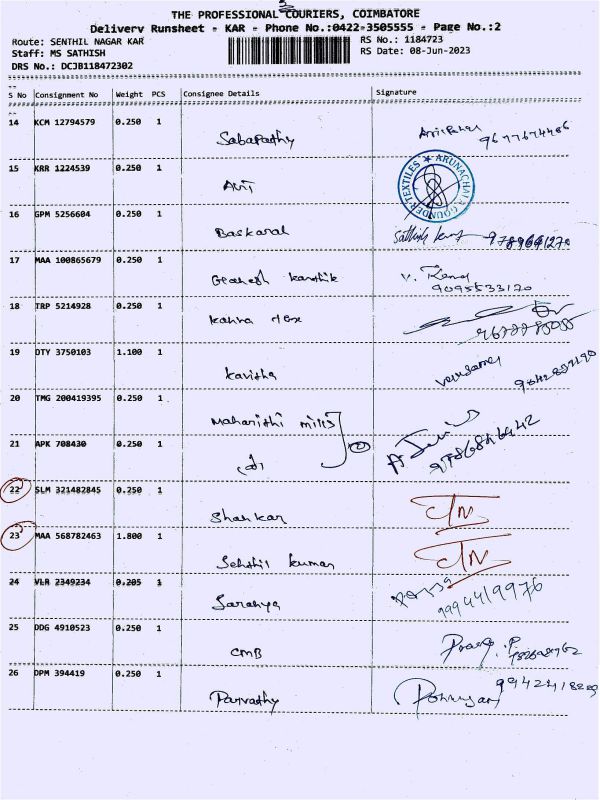 THE PROFESSIONAL COURIERS, COIMBATORE
Delivery Runsheet - KAR - Phone No.:0422-3505555 - Page No.:2
Route: SENTHIL NAGAR KAR
RS No.: 1184723
Staff: MS SATHISH
RS Date: 08-Jun-2023
DRS No.: DCJB118472302
S No Consignment No Weight PCS Consignee Details Signature
14 KCM 12794579 0.250 1
Sabapathy
9677674406
15 KRR 1224539 0.250 1
ARUNACHALA GOUNDER TEXTILES
16 GPM 5256604 0.250 1
Baskaran
Sathish
17 MAA 100865679 0.250 1
Ganesh karthik
9095533120
18 TRP 5214928 0.250 1
kanna tex
19 DTY 3750103 1.100 1
kavitha
20 TMG 200419395 0.250 1
Mahanithi mills
21 APK 708430 0.250 1
22 SLM 321482845 0.250 1
Shankar
23 MAA 568782463 1.800 1
Senthil kumar
24 VLR 2349234 0.205 1
Saranya
9994419976
25 DDG 4910523 0.250 1
CMB
26 DPM 394419 0.250 1
Parvathy